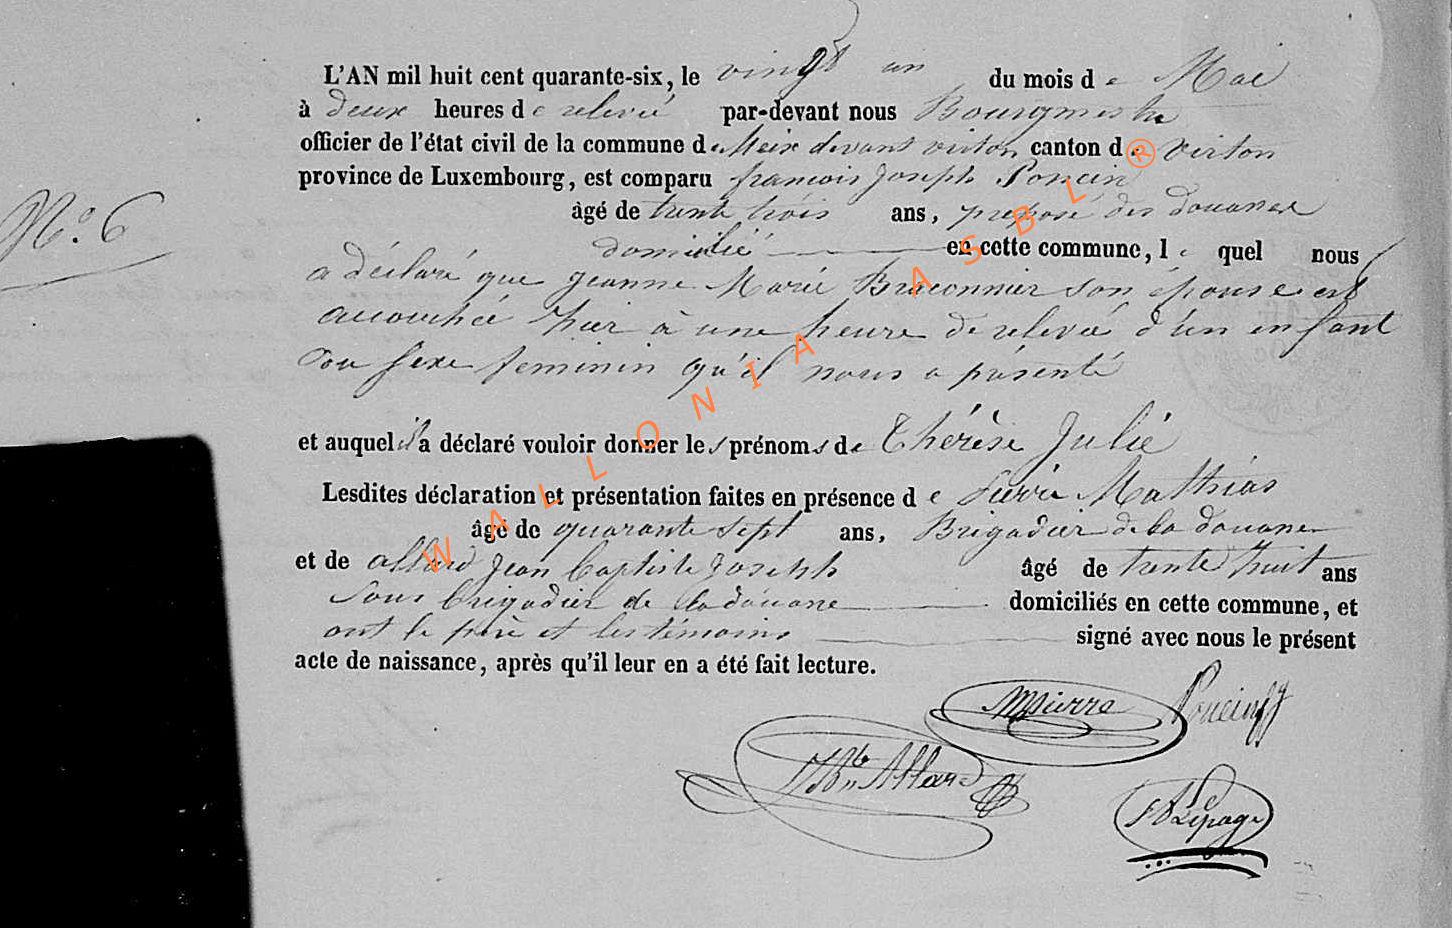 L'AN mil huit cent quarante-six, le vingt un du mois de Mai
à deux heures de relevée par-devant nous Bourgmestre
officier de l'état civil de la commune de Meix devant virton, canton de virton
province de Luxembourg, est comparu francois Joseph Poncin
N.° 6
âgé de trente trois ans, preposé des douanes
domicilié en cette commune, lequel nous
a déclaré que jeanne Marie Braconnier son épouse est
accouchée hier à une heure de relevée d'un enfant
du sexe feminin qu'il nous a présenté
et auquel il a déclaré vouloir donner les prénoms de Thérèse Julie
Lesdites déclaration et présentation faites en présence de Pierre Mathias
âgé de quarante sept ans, Brigadier de la douane
et de allard Jean Baptiste Joseph âgé de trente huit ans
Sous brigadier de la douane domiciliés en cette commune, et
ont le père et les témoins signé avec nous le présent
acte de naissance, après qu'il leur en a été fait lecture.
MPierre Poncin fj
JBte Allard
Lepage
WALLONIA ASBL ®